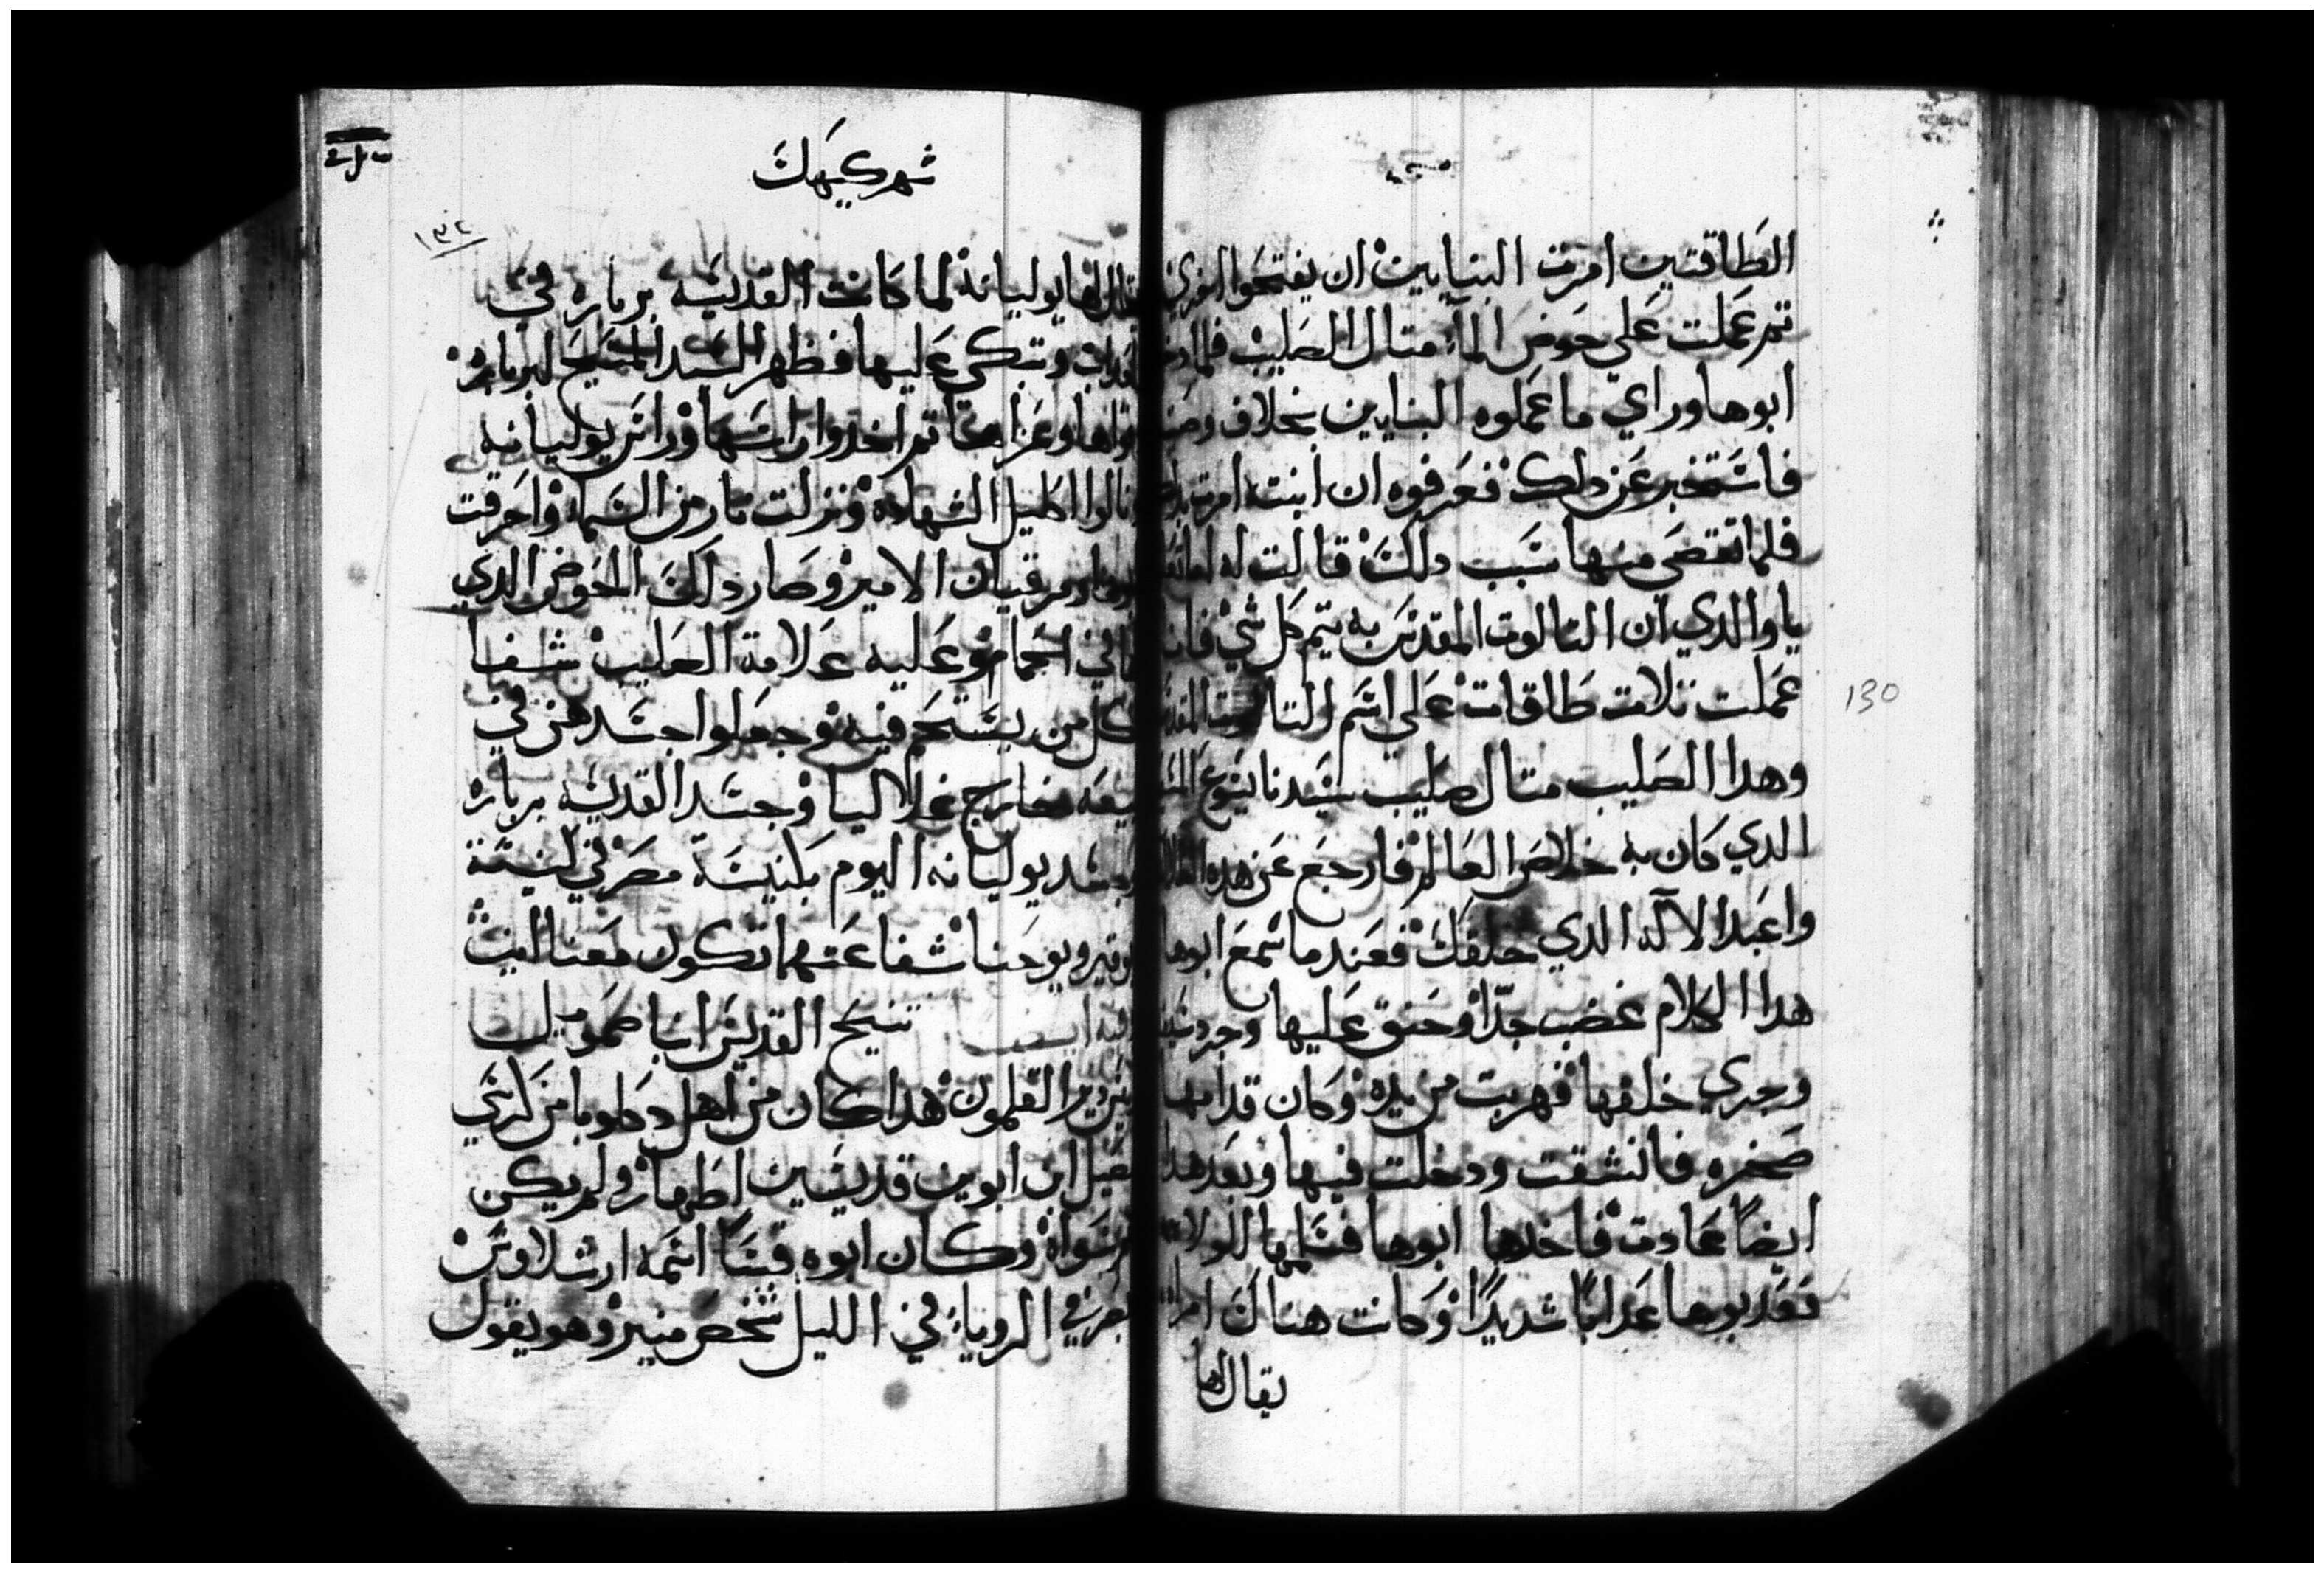 الطاقتين امرت البنايين ان يفتحوا اخري
تم عملت علي حوض الماء متال الصليب فلما دخل
ابوها وراي ما عملوه البنايين بخلاف
فاستخبر عن دلك فعرفوه ان ابنته امرت
فلما تقصي منها سبب دلك قالت له
يا والدي ان التالوت المقدس به يتم كل شي
عملت تلات طاقات علي اسم التالوت المقدس
وهدا الصليب متال صليب سيدنا يسوع
الدي كان به خلاص العالم فارجع عن هده
واعبد الالاه الدي خلقك فعند ما سمع ابوها
هدا الكلام غضب جدا وحنق عليها وجرد
وجري خلفها فهربت من يده وكان قدامها
صخره فانشقت ودخلت فيها وبعد هدا
ايضا عادت فاخدها ابوها للولاه
فعدبوها عدابا شديدا وكانت هناك امراه
يقال لها
شهر كيهك
١٣٢
يقال لها يوليانة لما كانت القديسه برباره في
العداب وتبكي عليها فظهر السيد المسيح لبرباره
وعزاها تم اخدوا راسها وراس يوليانه
ونالوا اكليل الشهادة ونزلت نار من السماء واحرقت
مرقيان الامير وصار دلك الحوض الدي
عليه علامة الصليب شفا
كل من يستحم فيه وجعلوا اجسدهن في
بيعه خارج غلاليا وجسد القديسه برباره
وجسد يوليانه اليوم بكنيسة مصر في كنيسة
ابوقير ويوحنا شفاعتهما تكون معنا امين
وفيه ايضا تنيح القديس انبا صمويل
دير القلمون هدا كان من اهل دكلوبا من كرسي
ابن ابوين قديسين اطهار ولم يكن
سواه وكان ابوه قسا اسمه ارسلاوس
في الروياء في الليل شخص منير وهو يقول
130